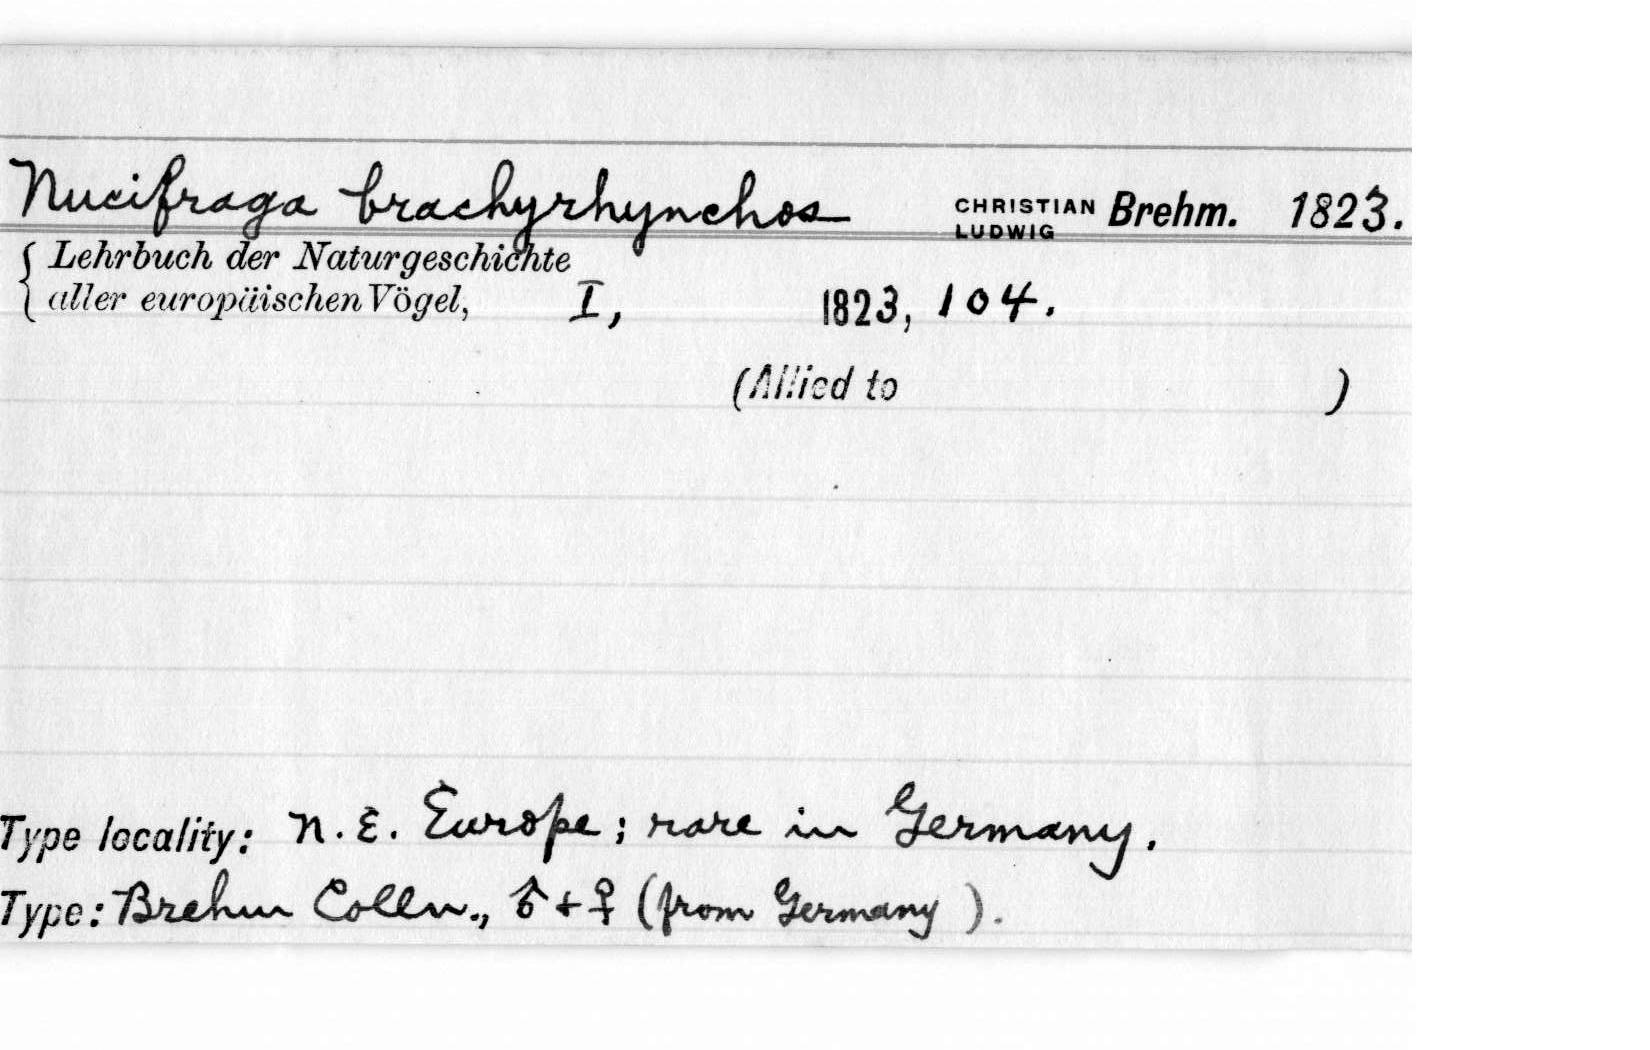 Nucifraga brachyrhynchos CHRISTIAN LUDWIG Brehm. 1823.
{ Lehrbuch der Naturgeschichte
aller europäischen Vögel, I, 1823, 104.
(Allied to )
Type locality: N. E. Europe; rare in Germany.
Type: Brehm Colln., ♂ + ♀ (from Germany ).